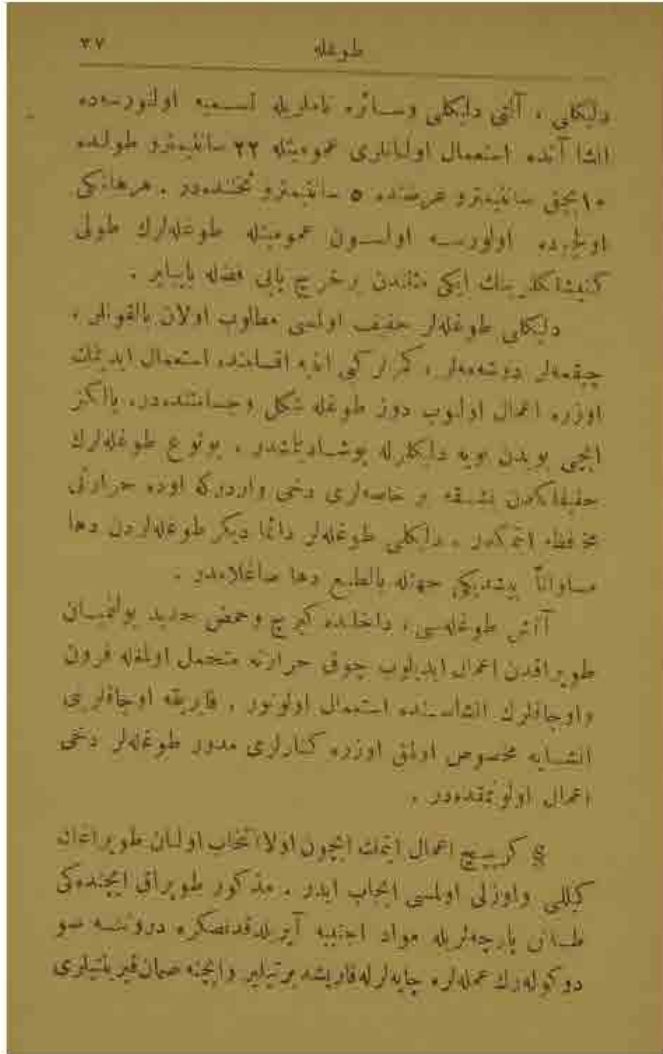 ٣٧ طوغله
دلیكلی ، آلتی دلیكلی وسـائره ناملریله تسـمیه اولنورسه‌ده
انشا آنده استعمال اولنانلری عمومیتله ٢٢ سانتیمترو طولنده
١٠ بچق سانتیمترو عرضنده ٥ سانتیمترو ثخننده‌در . هرهانكی
اولچیده اولورسـه اولسـون عمومیتله طوغله‌لرك طولی
گنیشلكلرینك ایكی مثلندن برخرج پایی فضله یاپیلیر .
دلیكلی طوغله‌لر خفیف اولمسی مطلوب اولان بالقونلر ،
چیقمه‌لر دوشمه‌لر ، كمرلر كبی ابنیه اقسامنده استعمال ایدیلمك
اوزره اعمال اولنوب دوز طوغله شكل وجسامتنده‌در. یالكز
ایچی بویدن بویه دلیكلرله بوشـادیلمشدر . بونوع طوغله‌لرك
خفیفلكدن بشـقه بر خاصه‌لری دخی واردركه اوده حرارتی
محافظه ایتمكدر . دلیكلی طوغله‌لر دائما دیكر طوغله‌لردن دها
مساواتاً پیشدیكی جهتله بالطبع دها صاغلامدر .
آتش طوغله‌سی ، داخلنده كیرج وحمض حدید بولنمیـان
طوپراقدن اعمال ایدیلوب چوق حرارته متحمل اولمغله فرون
واوجاقلرك انشاسـنده استعمال اولونور . فابریقه اوجاقلرینی
انشـایه مخصوص اولمق اوزره كنارلری مدور طوغله‌لر دخی
اعمال اولونمقده‌در .
§ كرپیـچ اعمال ایتمك ایچون اولا انتخاب اولنـان طوپراغك
كیللی واوزلی اولمسی ایجاب ایدر . مذكور طوپراق ایچنده‌كی
طـاش پارچه‌لریله مواد اجنبیه آیریلدقدنصكره دروننـه صو
دوكوله‌رك عمله‌لره چاپه‌لرله قاریشدیرتیلیر وایچنه صمان قیرینتیلری